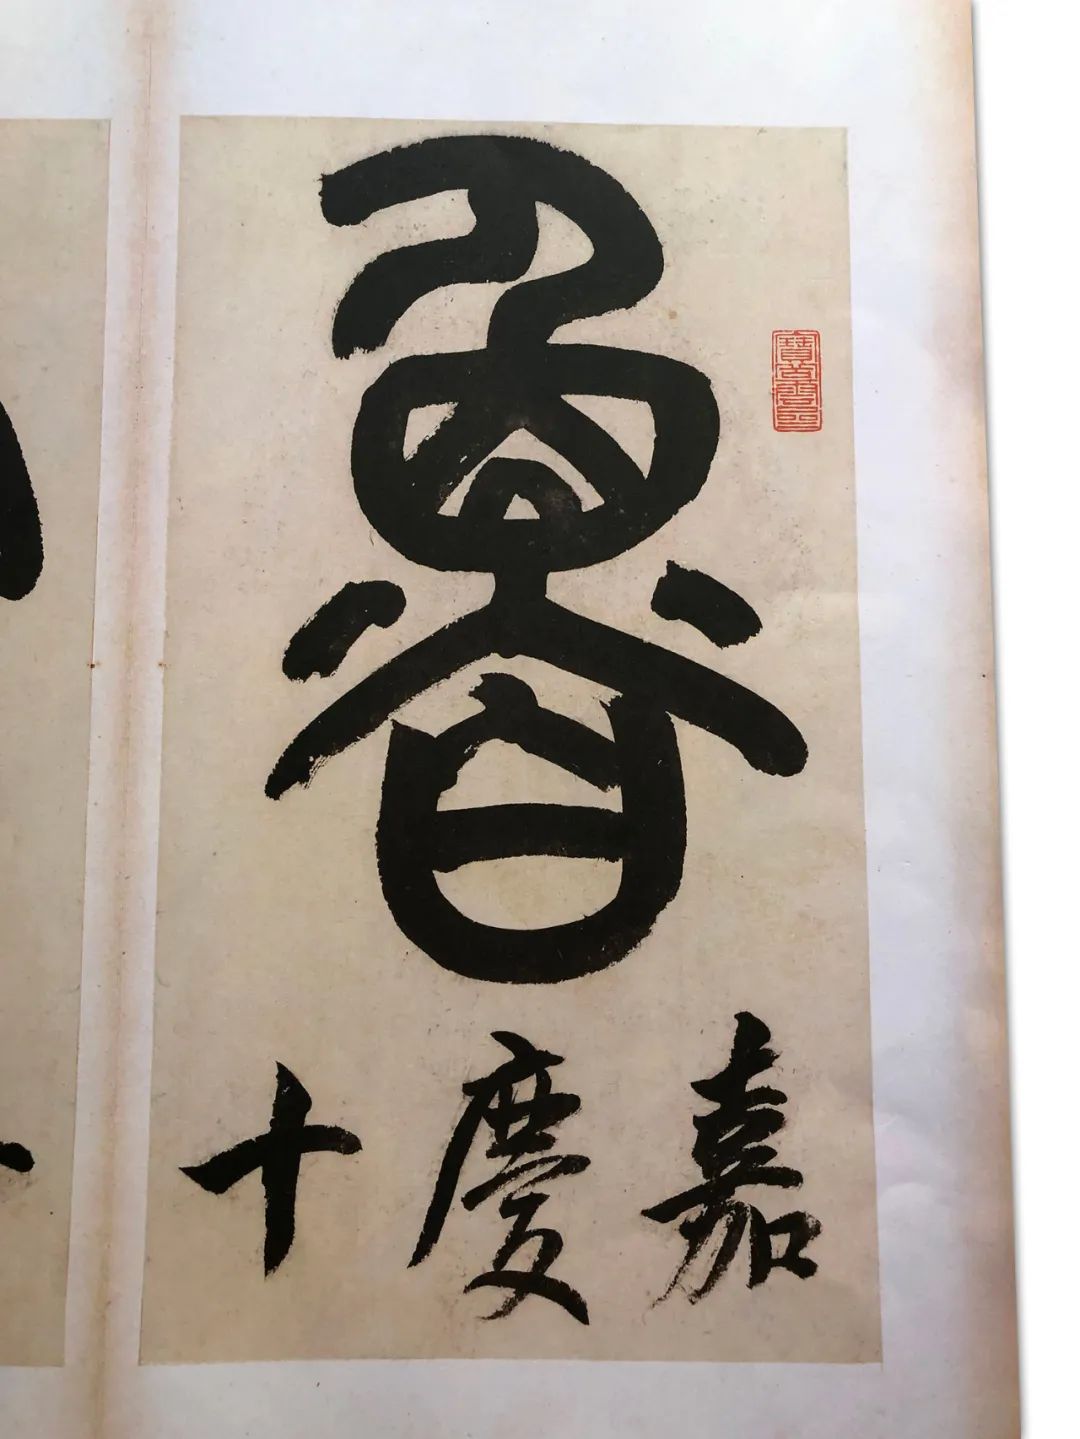 魯
嘉慶十